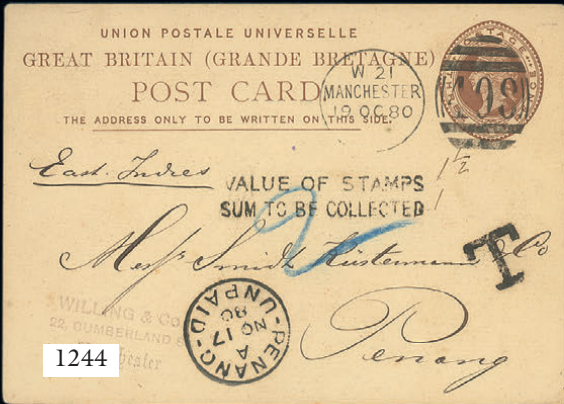 UNION POSTALE UNIVERSELLE
GREAT BRITAIN (GRANDE BRETAGNE)
POST CARD
THE ADDRESS ONLY TO BE WRITTEN ON THIS SIDE.
W 21
MANCHESTER
19 OC 80
498
East Indies
1½
VALUE OF STAMPS
SUM TO BE COLLECTED
1
2
T
Messrs Smidt Küstermann & Co
Penang
WILLING & Co
22, CUMBERLAND S
chester
PENANG-UNPAID-
A
NO 17
80
1244